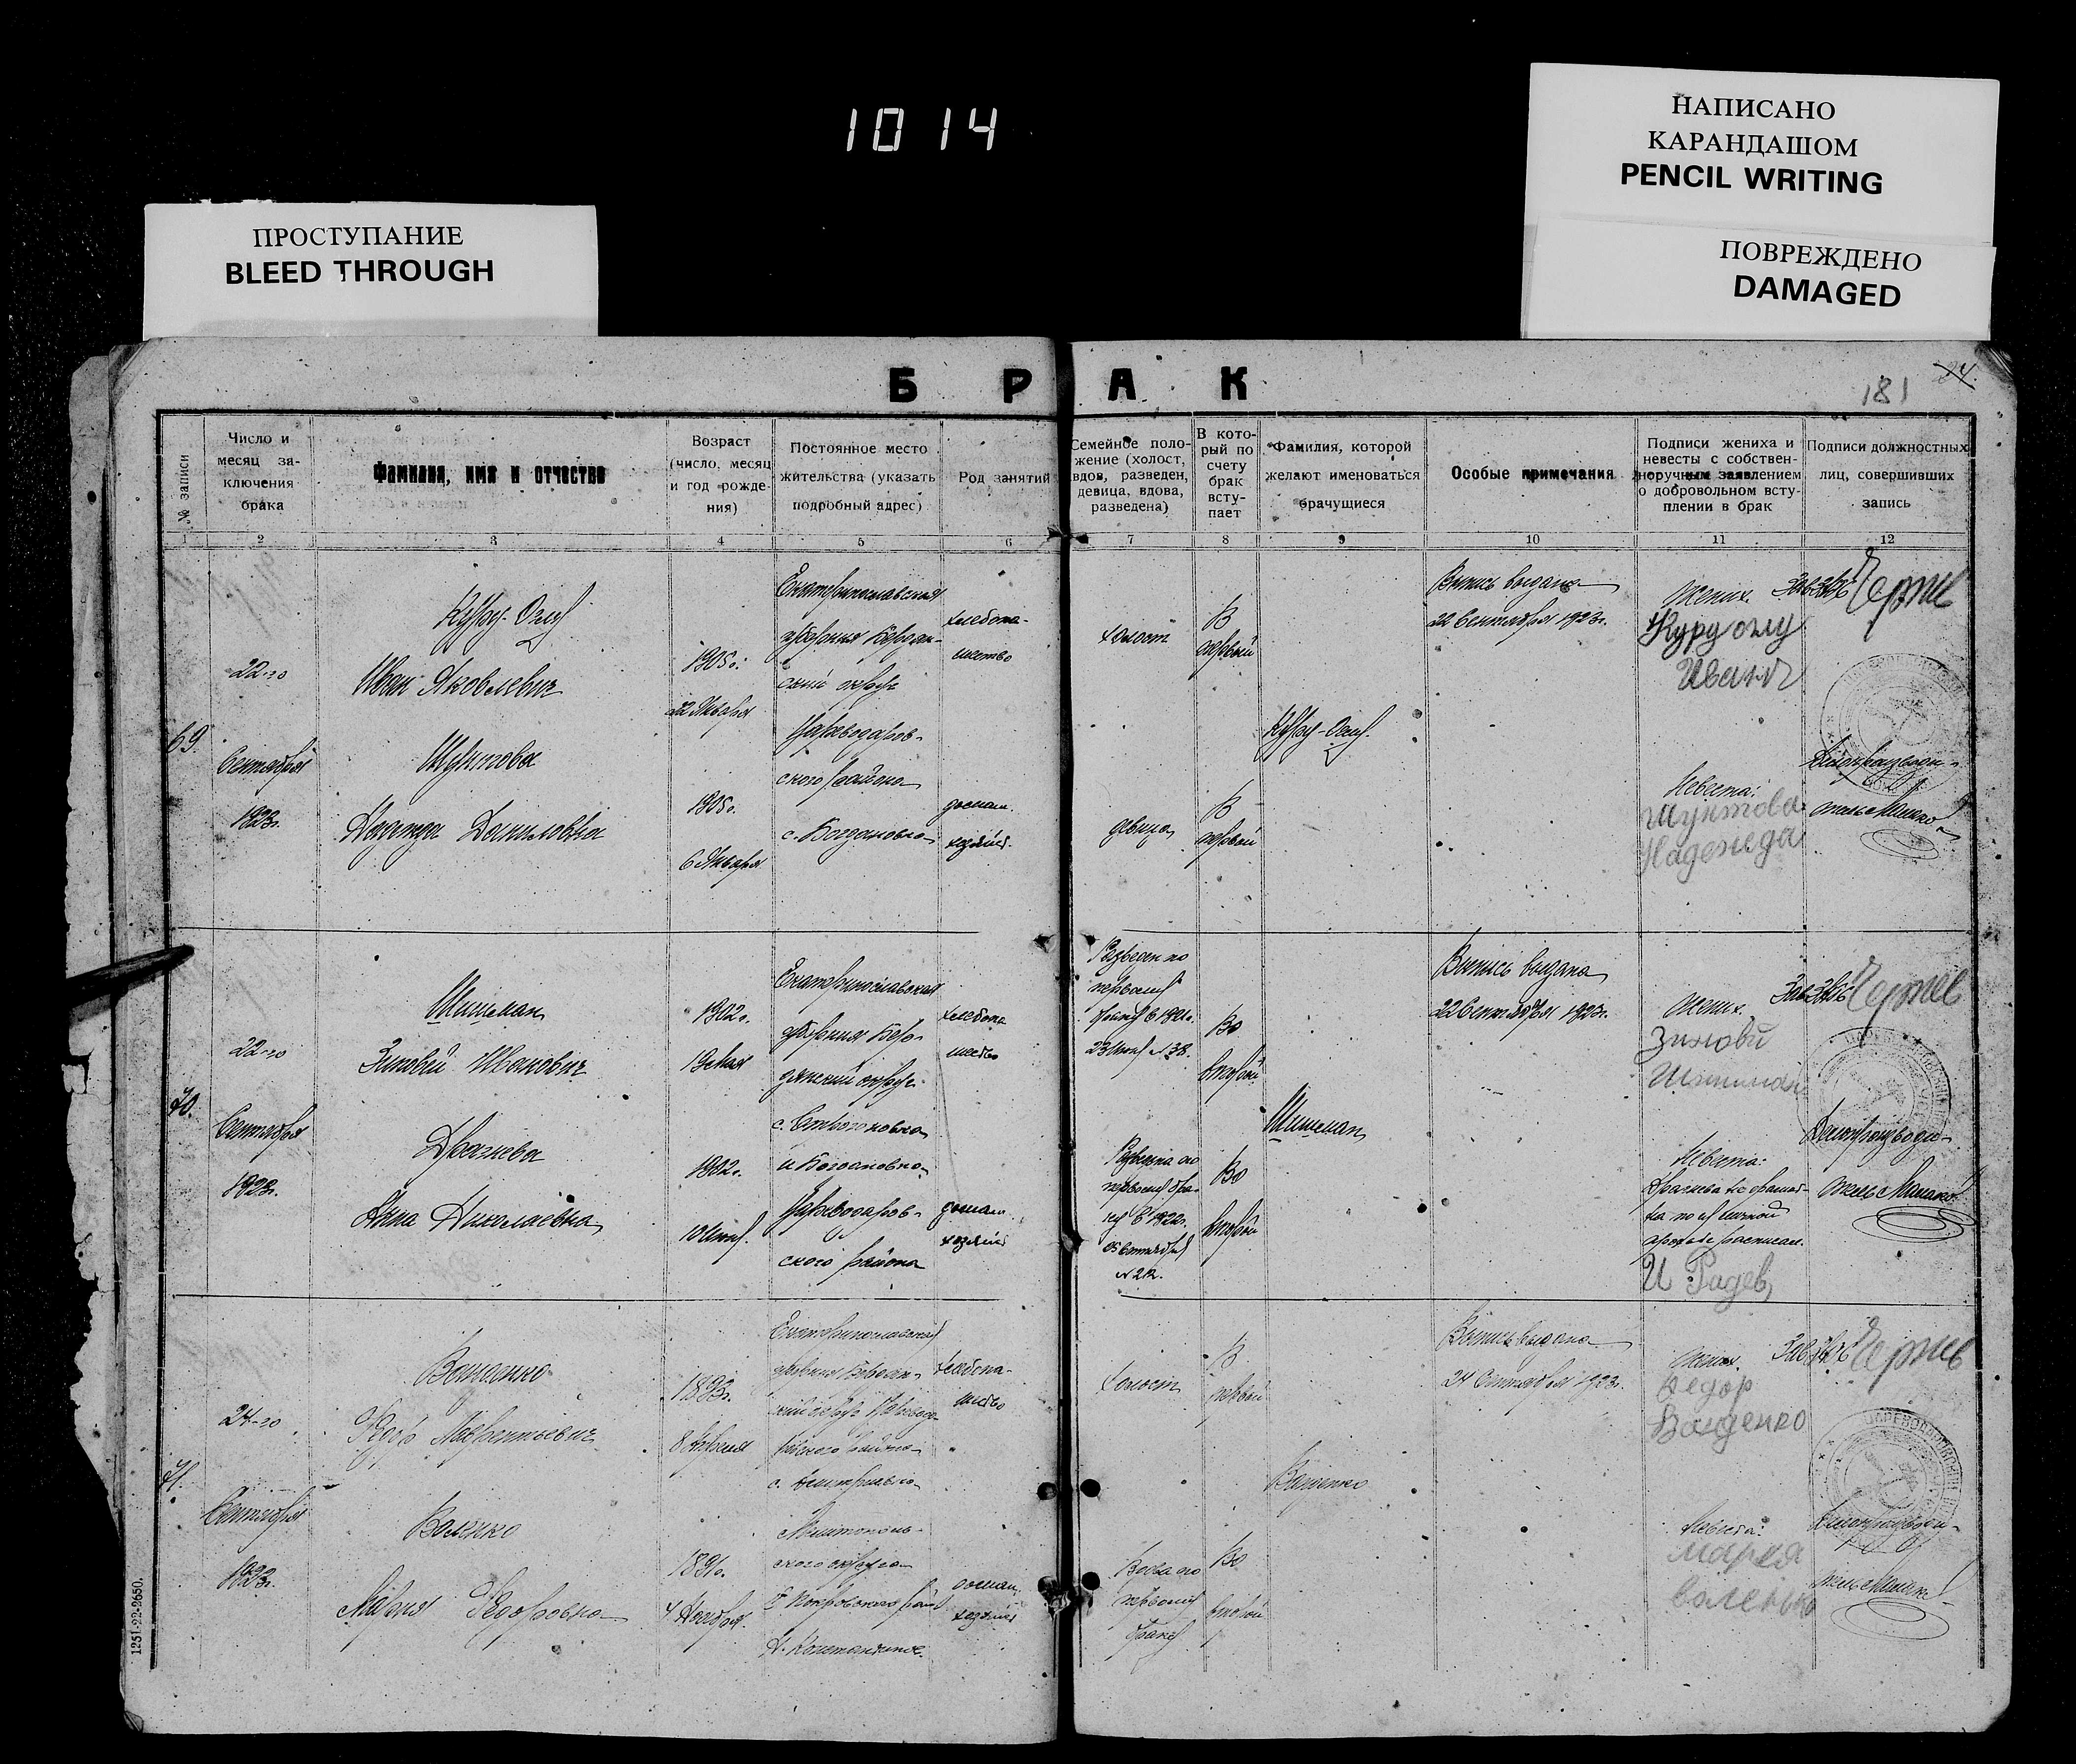 1014
НАПИСАНО
КАРАНДАШОМ
PENCIL WRITING
ПРОСТУПАНИЕ
BLEED THROUGH
ПОВРЕЖДЕНО
DAMAGED
Б Р А К
181
24.
№ записи
Число и
месяц за-
ключения
брака
Фамилия, имя и отчество
Возраст
(число, месяц
и год рожде-
ния)
Постоянное место
жительства (указать
подробный адрес)
Род занятий
Семейное поло-
жение (холост,
вдов, разведен,
девица, вдова,
разведена)
В кото-
рый по
счету
брак
всту-
пает
Фамилия, которой
желают именоваться
брачущиеся
Особые примечания
Подписи жениха и
невесты с собствен-
норучным заявлением
о добровольном всту-
плении в брак
Подписи должностных
лиц, совершивших
запись
1 2 3 4 5 6 7 8 9 10 11 12
69.
22-го
Сентября
1923г.
Иван Яковлевич
Шунтова
Надежда Даниловна
1905г.
22 Января
1905г.
6 Января
Екатеринославская
губерния Бердян-
ский округ
Цареводаров-
ского района
с. Богдановка
хлебопа-
шество
домаш.
хозяйст.
холост
девица
В
первый
В
первый
Куру-Оглу
Выпись выдана
22 Сентября 1923г.
Жених.
Куруоглу
Иван
Невеста:
Шунтова
Надежда
Зав.
Делопроизводи-
тель
70.
22-го
Сентября
1923г.
Шишман
Зиновий Иванович
Драгнева
Анна Николаевна
1902г.
1902г.
10
Екатеринославская
губерния Бер-
дянский округ
с.
и Богдановка
Цареводаров-
ского района
хлебопа
шество
домаш.
хозяйст
Разведен по
первому
браку в 1921г.
№ 38.
Во
второй
Разведена по
первому бра-
ку в 1922г.
Во
второй
Шишман
Выпись выдана
22 Сентября 1923г.
Жених.
Зиновй
Шишман
Невеста:
Драгнева не грамот-
на по её личной
просьбе расписал.
И Радев
Зав.
Делопроизводи-
тель
71.
24-го
Сентября
1923г.
Ващенко
Федор Лаврентьевич
Воленко
Мария Федоровна
1893г.
1891г.
Екатеринославская
губерния Бердян-
ский округ
с.
Мелитополь-
ского округа
хлебопа-
шество
домаш.
хозяйст
Холост
В
первый
Вдова по
первому
браку
Во
второй
Ващенко
Выпись выдана
24 Сентября 1923г.
Жених.
Федор
Ващенко
Невеста:
Мария
Воленко
Зав.
Делопроизводи-
тель
1251-22-8650.